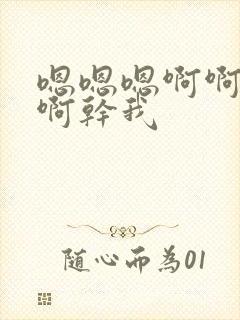 嗯嗯嗯啊啊
啊幹我
随心而為01